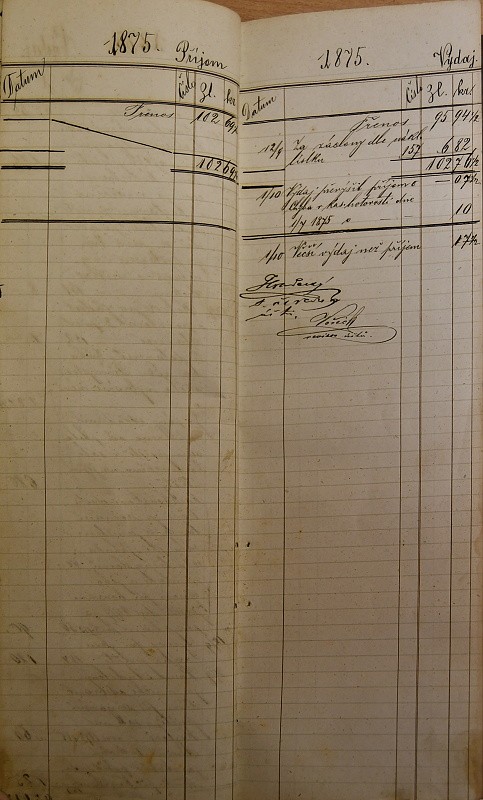 1875. Příjem
Datum Číslo Zl. kr.
Přenos 102 69½
102 69½
1875. Výdaj.
Datum Číslo Zl. kr.
Přenos 95 94½
12/9 Za záclony dle nákl.
lístku 157 6 82
102 76½
1/10 Výdaj převýšil příjem o — 07½
Chyba v hotovosti dne
1/7 1875 o — — 10
1/10 Větší výdaj než příjem 17½
revisor účtů.